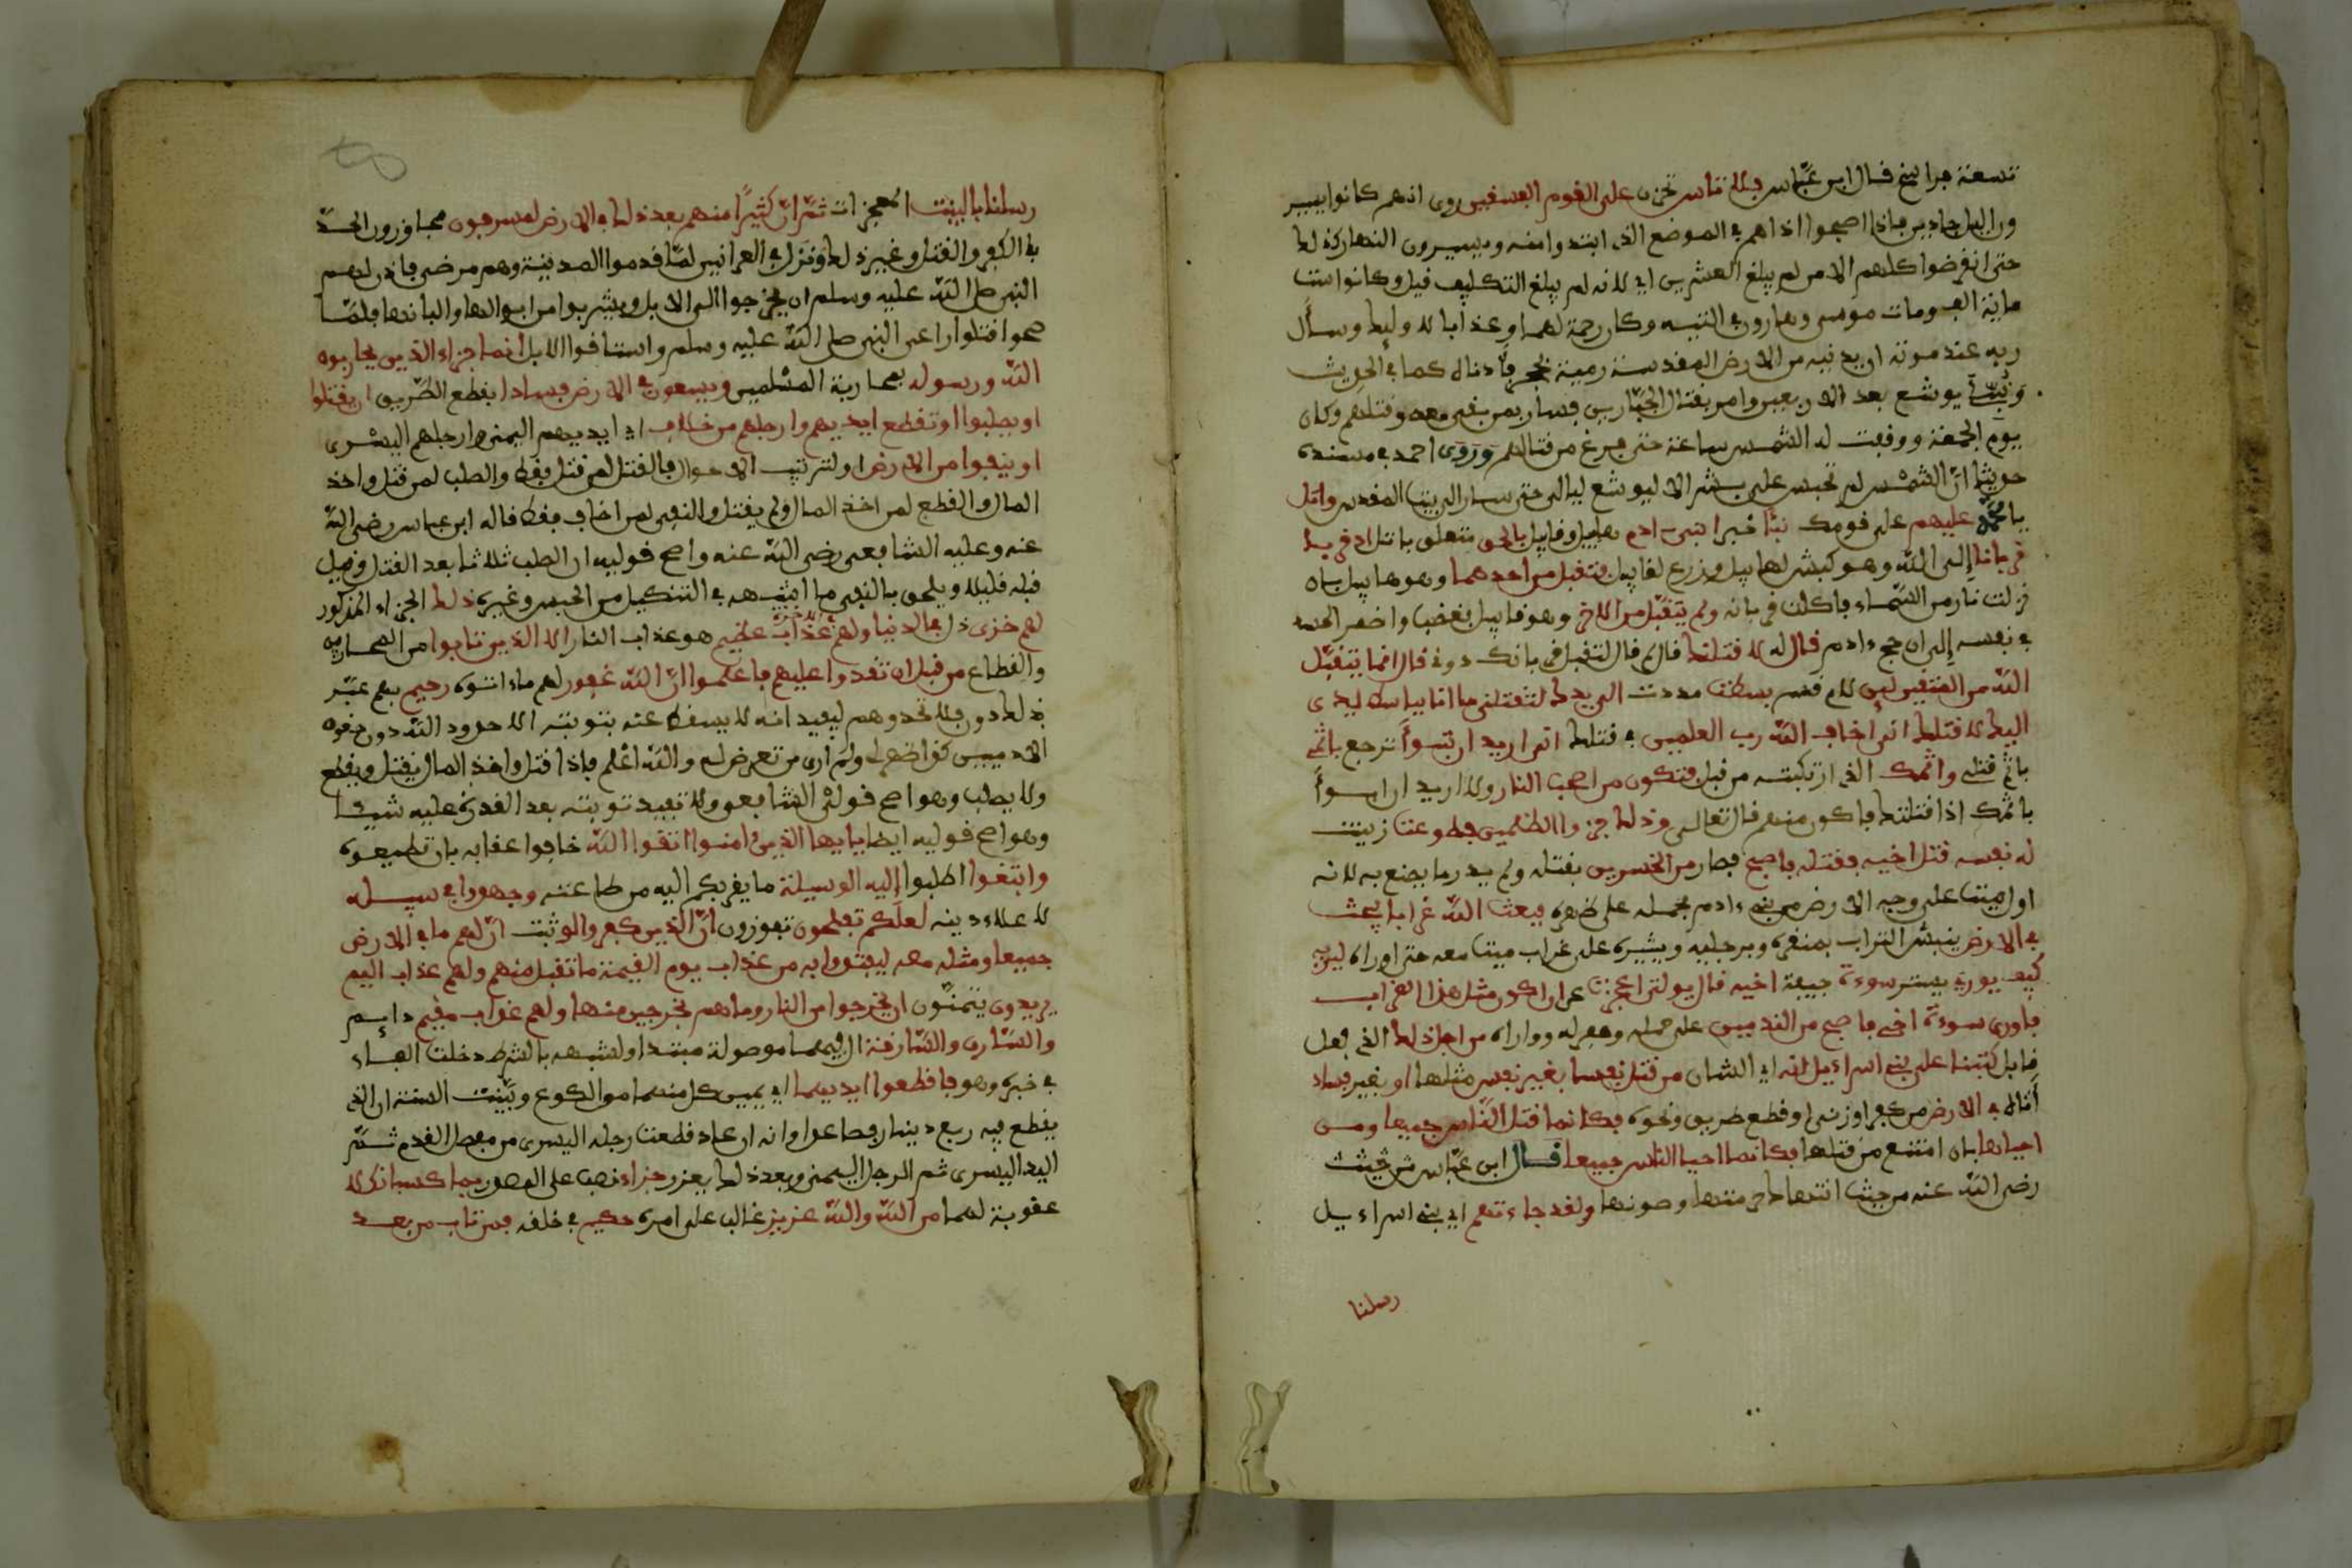 تسعة فراسخ قال ابن عبّاس فلا تاس تحزن على القوم الفسقين روي انهم كانوا يسير
ون اليل جادين فاذا اصبحوا اذا هم في الموضع الذي ابتدوا منه ويسيرون النهار كذلك
حتى انقرضوا كلهم الا من لم يبلغ العشرين اي لانه لم يبلغ التكليف قيل وكانوا ست
ماية الف ومات موسى وهارون في التيه وكان رحمة لهما وعذابا لاوليك وسأل
ربه عند موته ان يدنيه من الارض المقدسة رمية بحجر فأدناه كما في الحديث
ونبّئ يوشع بعد الاربعين وامر بقتال الجبّارين فسار بمن بقي معه وقتلهم وكان
يوم الجمعة ووقفت له الشمس ساعة حتى فرغ من قتالهم وروى احمد في مسنده
حديثا انّ الشمس لم تحبس على بشر الا ليوشع ليالي حتى سار الى بيت المقدس واتل
يا محمّد عليهم على قومك نبأ خبر ابني ادم هابيل وقابيل بالحق متعلق باتل اذ قربا
قربانا إلى الله وهو كبش لهابيل وزرع لقابيل فتقبل من احدهما وهو هابيل بان
نزلت نار من السّماء فاكلت قربانه ولم يتقبّل من الاخر وهو قابيل فغضب واضمر الحسد
في نفسه إلى ان حج ءادم قال له لاقتلنك قال لم قال لتقبل قربانك دوني قال انما يتقبّل
الله من المتقين لين لام قسم بسطت مددت الي يدك لتقتلني ما انا بباسط يدي
اليك لاقتلك اني اخاف الله رب العلمين في قتلك اني اريد ان تبوأ ترجع باثمي
باثم قتلي واثمك الذي ارتكبته من قبل فتكون من اصحب النار ولا اريد ان ابوأ
باثمك اذا قتلتك فاكون منهم قال تعالى وذلك جزوا الظلمين فطوعت زينت
له نفسه قتل اخيه فقتله فاصبح فصار من الخسرين بقتله ولم يدر ما يصنع به لانه
اول ميت على وجه الارض من بني ءادم فحمله على ظهره فبعث الله غرابا يبحث
في الارض ينبش التراب بمنقره وبرجليه ويثيره على غراب ميت معه حتى واراه ليريه
كيف يوري يستر سوءة جيفة اخيه قال يولتى اعجزت عن ان اكون مثل هذا الغراب
فاوري سوءة اخي فاصبح من الندمين على حمله وحفر له وواراه من اجل ذلك الذي فعل
قابل كتبنا على بني اسراءيل انه اي الشان من قتل نفسا بغير نفس قتلها او بغير فساد
أتاه في الارض من كفر او زنى او قطع طريق ونحوه فكانما قتل النّاس جميعا ومن
احياها بان امتنع من قتلها فكانما احيا الناس جميعا قال ابن عبّاس
رضي الله عنه من حيث انتهاك حرمتها وصونها ولقد جاءتهم اي بني اسراءيل
رسلنا
رسلنا بالبينت المعجزات ثمّ انّ كثيرًا منهم بعد ذلك في الارض لمسرفون مجاوزون الحدّ
في الكفر والقتل وغير ذلك ونزل في العرانيين لمّا قدموا المدينة وهم مرضى فاذن لهم
النبي صلى الله عليه وسلم ان يخرجوا الى الابل ويشربوا من ابوالها والبانها فلمّا
صحوا قتلوا راعي النبي صلى الله عليه وسلم واستاقوا الابل انما جزاء الذين يحاربون
الله ورسوله بمحاربة المسلمين ويسعون في الارض فسادا بقطع الطّريق ان يقتلوا
او يصلبوا او تقطع ايديهم وارجلهم من خلاف اي ايديهم اليمنى وارجلهم اليسرى
او ينفوا من الارض او لترتيب الاحوال فالقتل لمن قتل فقط والصلب لمن قتل واخذ
المال والقطع لمن اخذ المال ولم يقتل والنفي لمن اخاف فقط قاله ابن عباس رضي الله
عنه وعليه الشافعي رضي الله عنه واصح قوليه ان الصلب ثلاثا بعد القتل وقيل
قبله قليلا ويلحق بالنفي ما اشبهه في التنكيل من الحبس وغيره ذلك الجزاء المذكور
لهم خزي ذل في الدنيا ولهم في الاخرة عذاب عظيم هو عذاب النار الا الذين تابوا من المحاربين
والقطاع من قبل ان تقدروا عليهم فاعلموا انّ الله غفور لهم ما اتوه رحيم بهم عبّر
بذلك دون فلا تحدوهم ليفيد انه لا يسقط عنه بتوبته الا حدود الله دون حقوق
الادميين كذا ظهر لي ولم ار من تعرض له والله أعلم فاذا قتل واخذ المال يقتل ويقطع
ولا يصلب وهو اصح قولي الشافعي ولا تفيد توبته بعد القدرة عليه شيا
وهو اصح قوليه ايضا يايها الذين امنوا اتقوا الله خافوا عقابه بان تطيعوه
وابتغوا اطلبوا إليه الوسيلة ما يقربكم اليه من طاعته وجهدوا في سبيله
لاعلاء دينه لعلّكم تفلحون تفوزون انّ الذين كفروا لو ثبت انّ لهم ما في الارض
جميعا ومثله معه ليفتدوا به من عذاب يوم القيمة ما تقبل منهم ولهم عذاب اليم
يريدون يتمنّون ان يخرجوا من النار وما هم بخرجين منها ولهم عذاب مقيم دايم
والسّارق والسّارقة ال فيهما موصولة مبتدا ولشبهه بالشرط دخلت الفاء
في خبره وهو فاقطعوا ايديهما اي يمين كل منهما من الكوع وبيّنت السنة ان الذي
يقطع فيه ربع دينار فصاعدا وانه ان عاد قطعت رجله اليسرى من مفصل القدم ثمّ
اليد اليسرى ثم الرجل اليمنى وبعد ذلك يعزر جزاء نصب على المصدر بما كسبا نكلا
عقوبة لهما من الله والله عزيز غالب على امره حكيم في خلقه فمن تاب من بعد